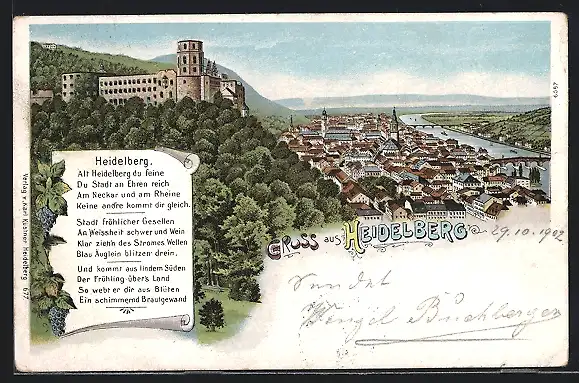 Heidelberg.
Alt Heidelberg du feine
Du Stadt an Ehren reich
Am Neckar und am Rheine
Keine andre kommt dir gleich.
Stadt fröhlicher Gesellen
An Weisheit schwer und Wein
Klar ziehn des Stromes Wellen
Blau Äuglein blitzen drein.
Und kommt aus lindem Süden
Der Frühling über's Land
So webt er dir aus Blüten
Ein schimmernd Brautgewand
Gruss aus Heidelberg
29.10.1902
Sendet
Buchberger
Verlag v. Karl Kastner Heidelberg 677